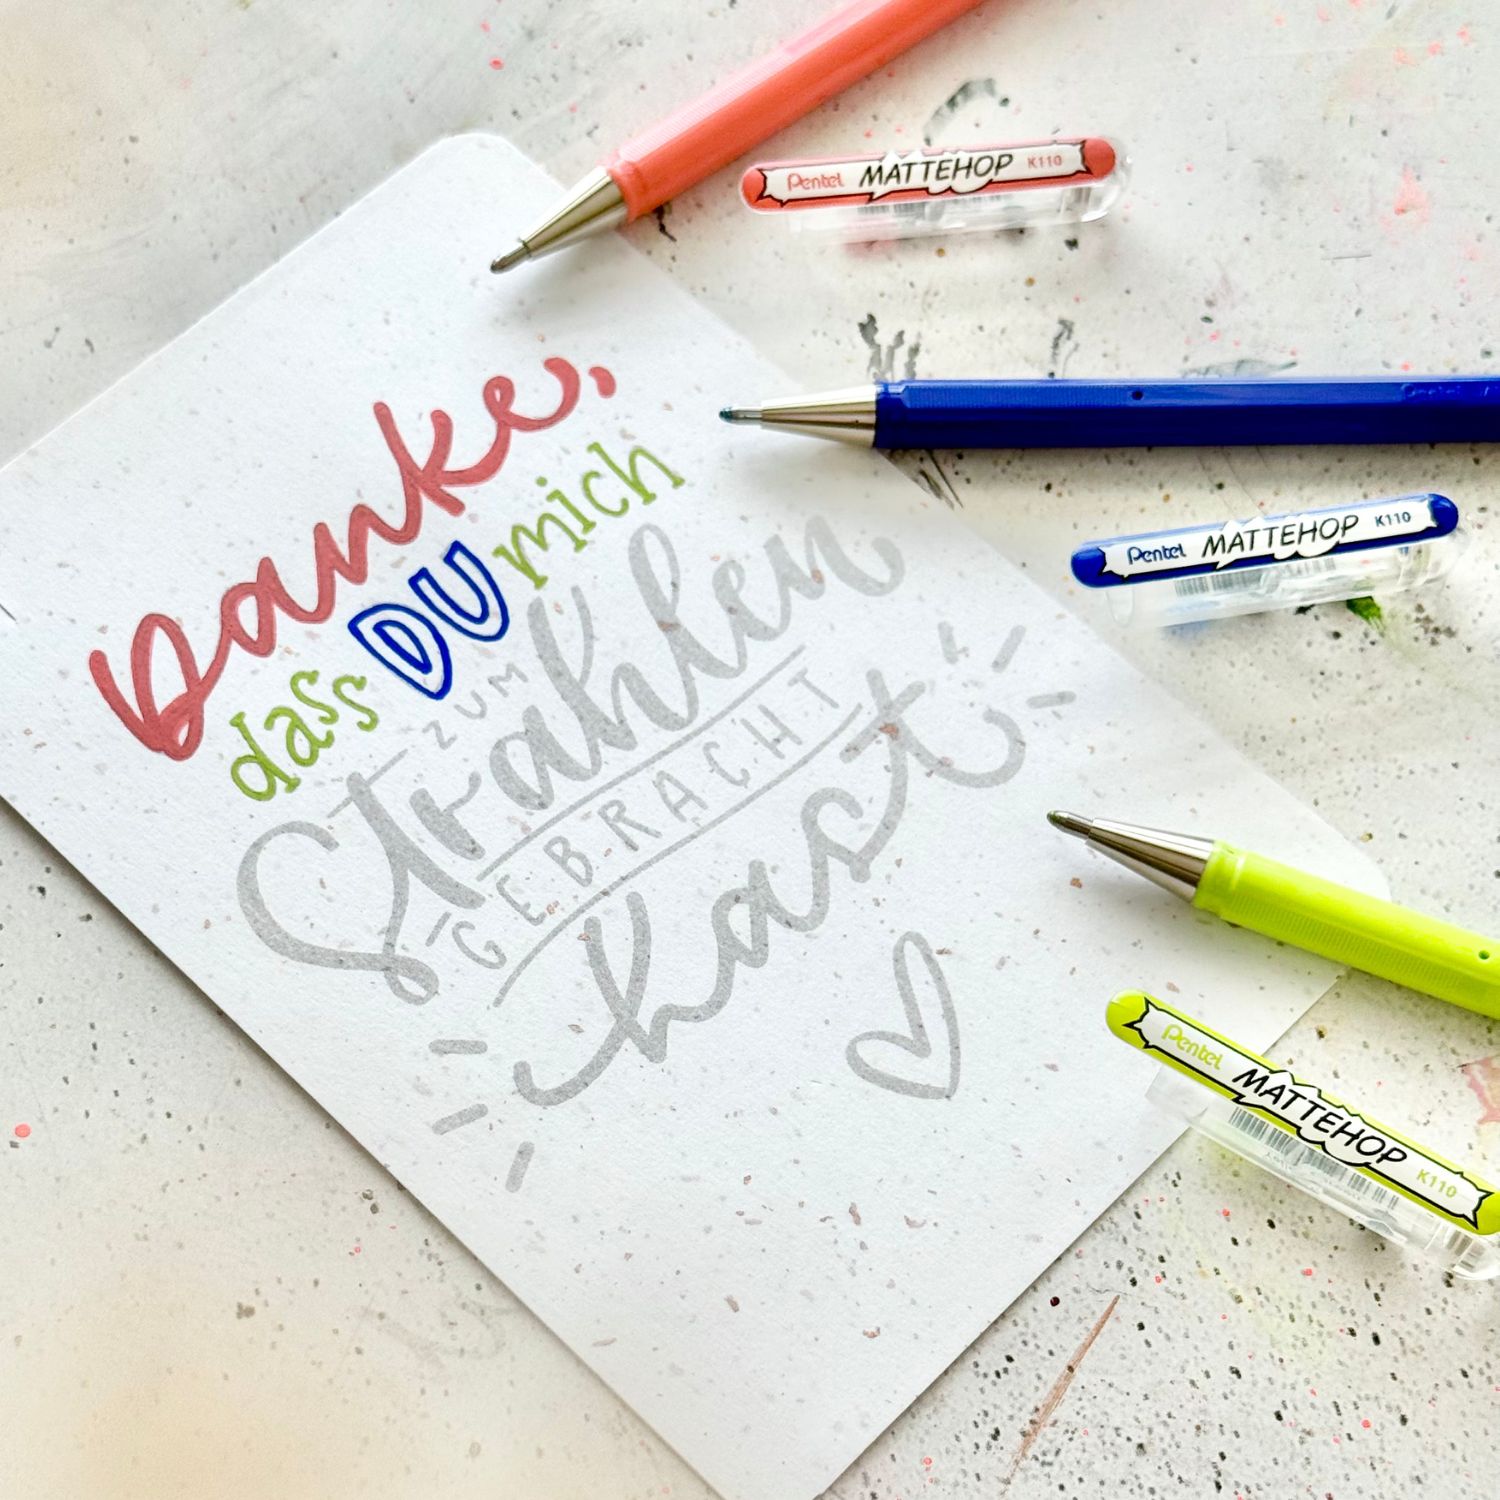 Danke,
dass DU mich
ZUM
Strahlen
GEBRACHT
hast
Pentel MATTEHOP K110
Pentel MATTEHOP K110
Pentel MATTEHOP K110